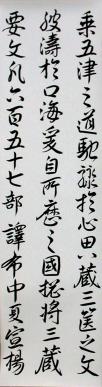 乘五律之道馳驟於心田八藏三篋之文
波濤於口海爰自所歷之國揔將三藏
要文凡六百五十七部譯布中夏宣揚